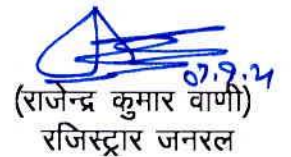 07.9.21
(राजेन्द्र कुमार वाणी)
रजिस्ट्रार जनरल